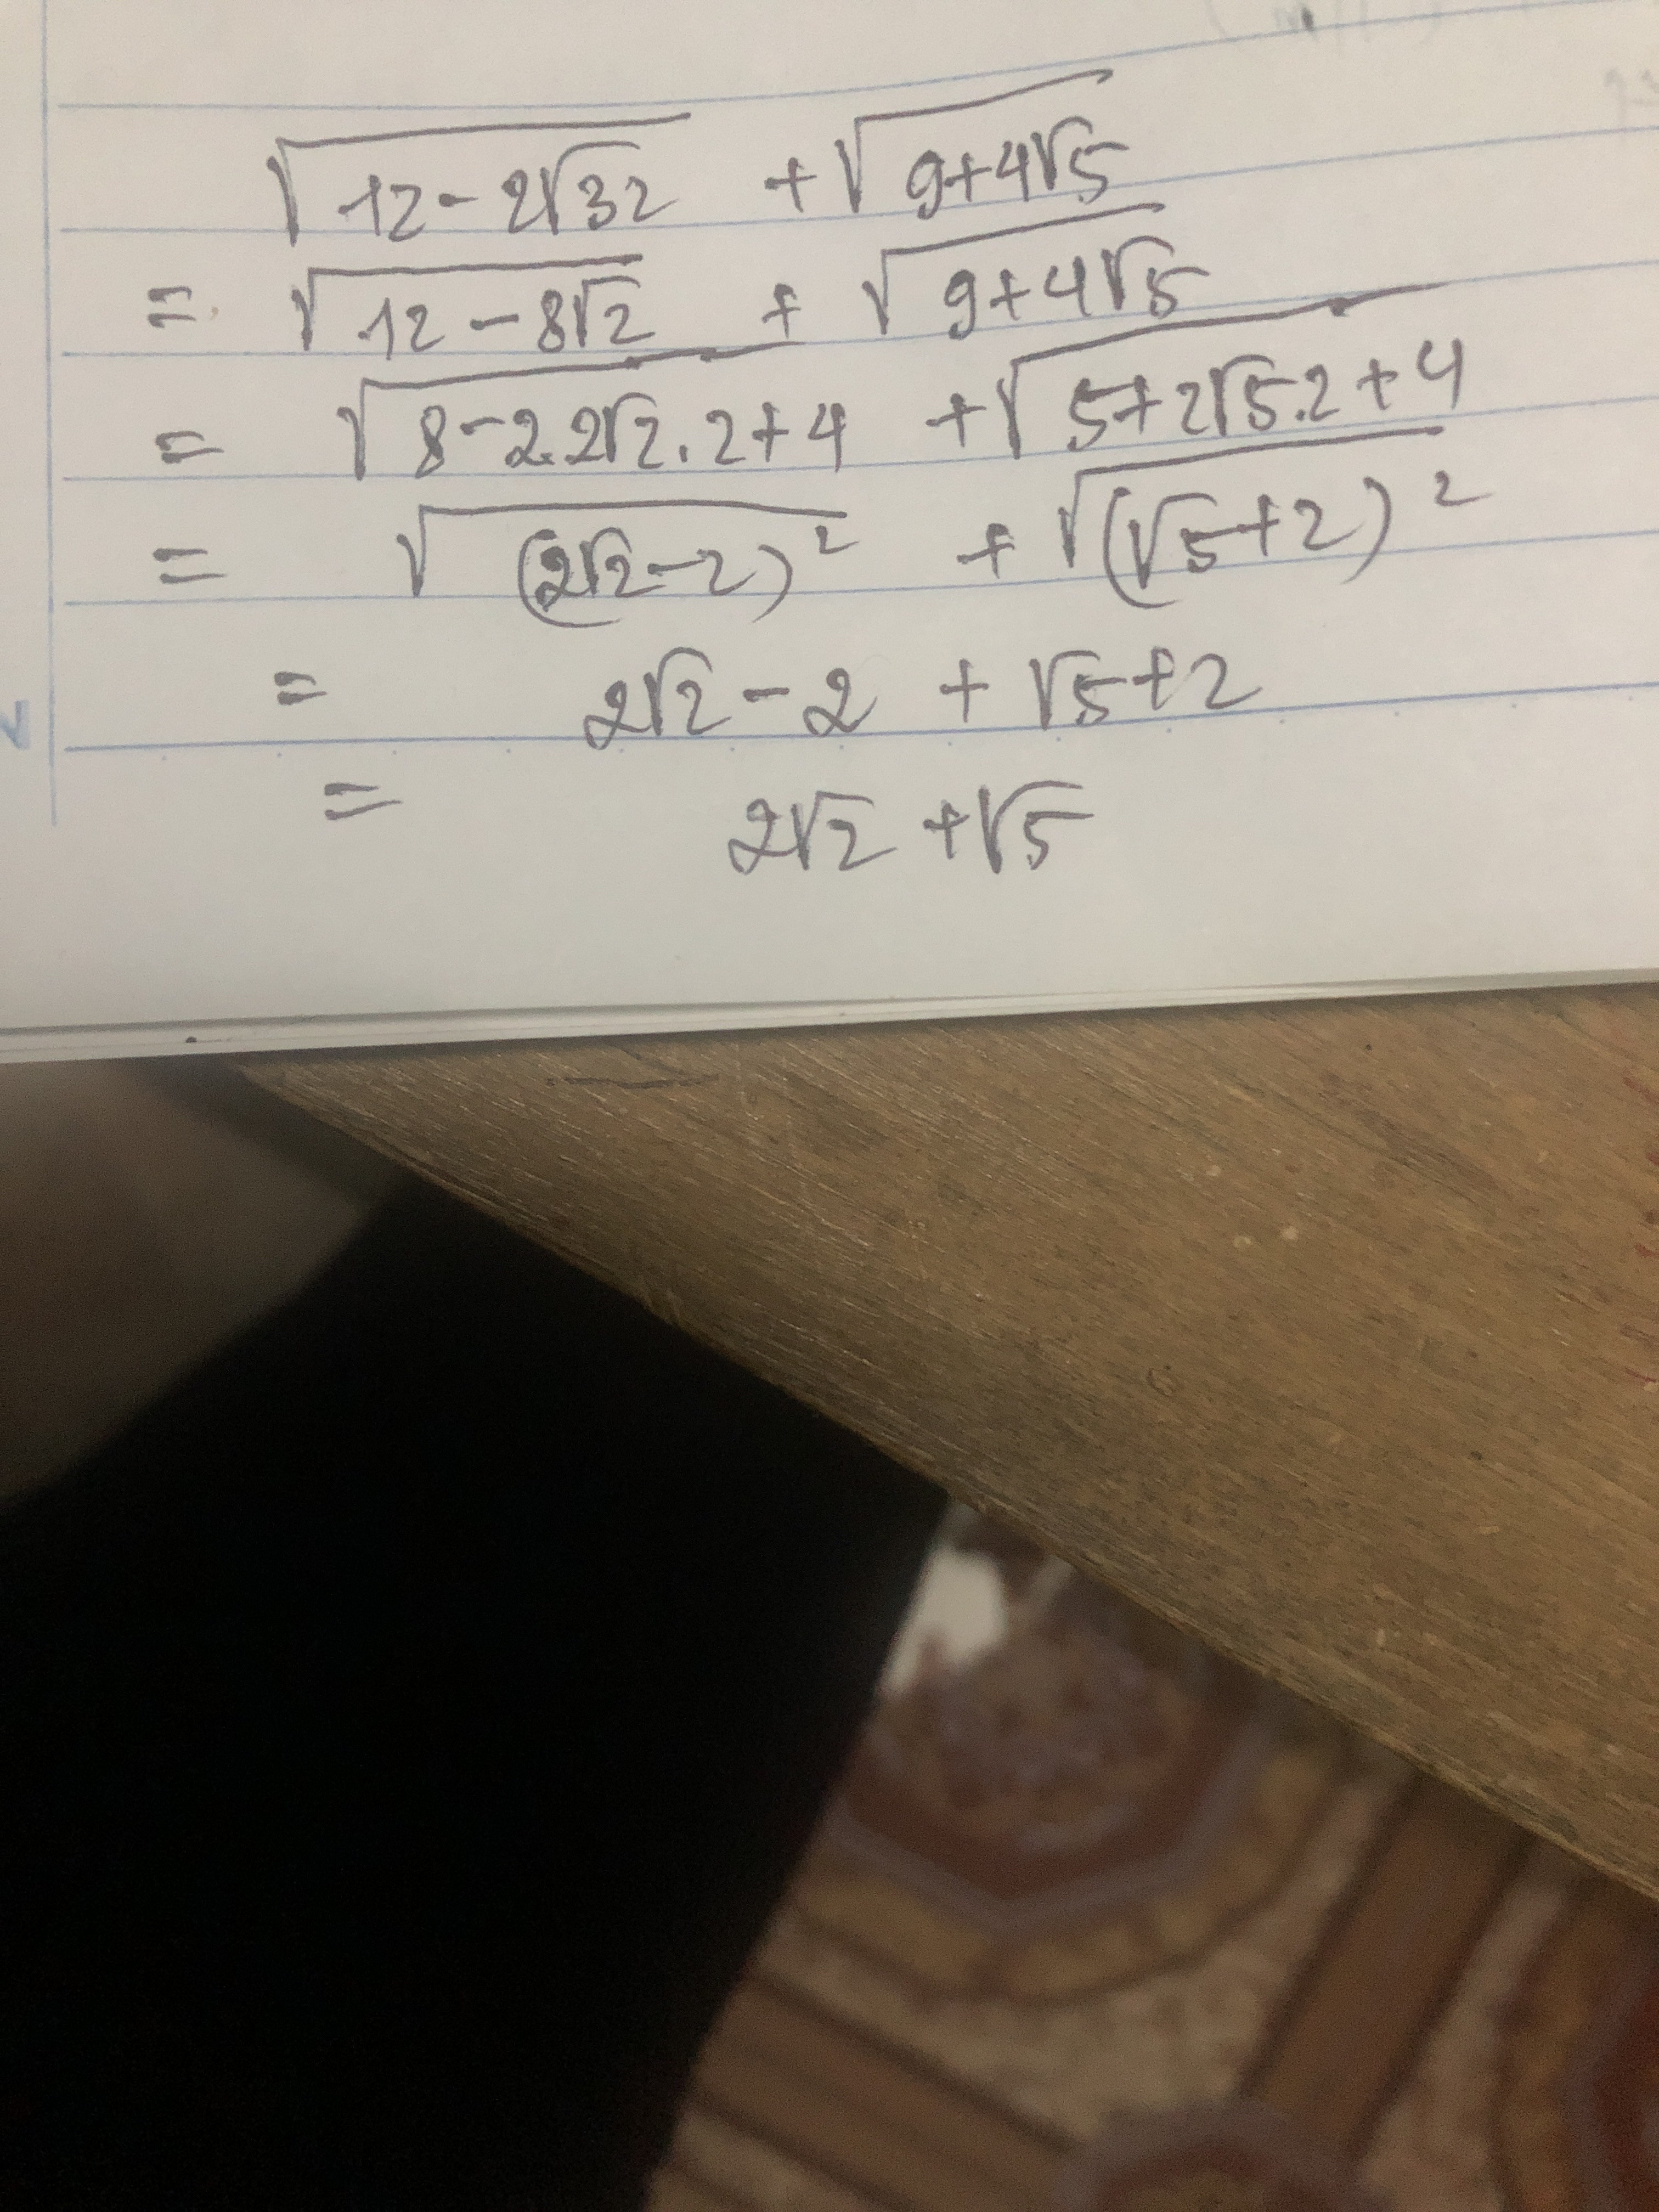 √(12-2√32) + √(9+4√5)
= √(12-8√2) + √(9+4√5)
= √(8-2.2√2.2+4) + √(5+2√5.2+4)
= √((2√2-2)²) + √((√5+2)²)
= 2√2-2 + √5+2
= 2√2 +√5